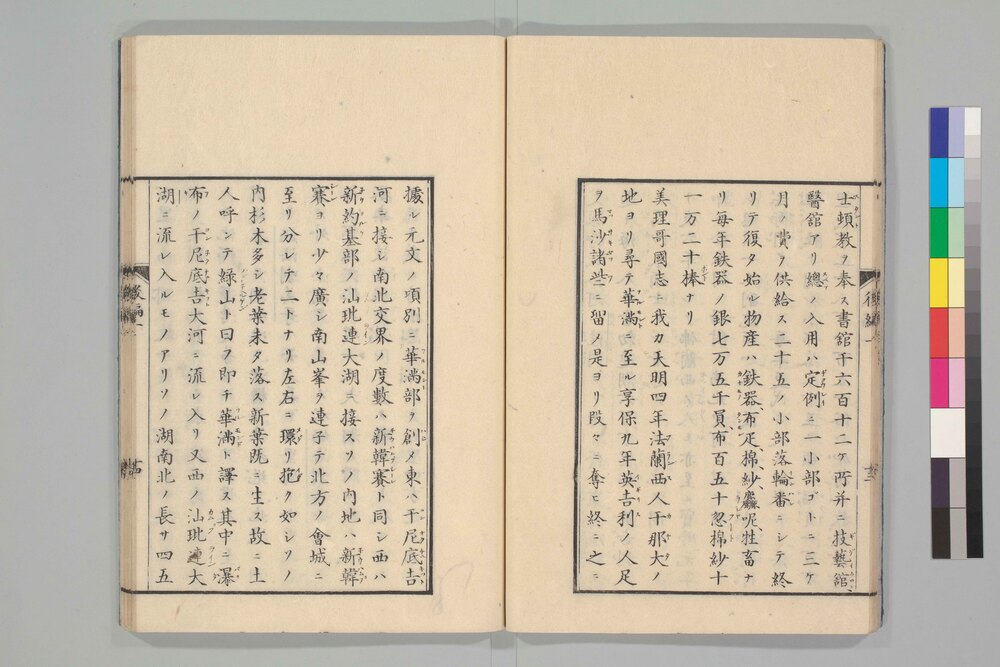 士頓教ヲ奉ス書舘千六百十二ケ所并ニ技藝舘、
醫舘アリ總ノ入用ハ定例ニ一小部ゴトニ三ケ
月ノ費ヲ供給ス二十五ノ小部落輪番ニシテ終
リテ復タ始ル物産ハ鉄器、布疋、棉紗、麤呢、牲畜ナ
リ毎年鉄器ノ銀七万五千員、布百五十忽棉紗十
一万二十棒ナリ
美理哥國志ト我カ天明四年法蘭西人干那大ノ
地ヨリ尋テ華満ニ至ル享保九年英吉利ノ人足
ヲ馬沙諸些ニ留ノ是ヨリ段々ニ奪ヒ終ニ之ニ
據ル元文ノ項別ニ華満部ヲ創メ東ハ干尼底吉
河ニ接シ南北交界ノ度數ハ新韓賽ト同シ西ハ
新約基部ノ汕玭連大湖ニ接スソノ内地ハ新韓
賽ヨリ少々廣シ南山峯ヲ連子テ北方ノ會城ニ
至リ分レテ二トナリ左右ニ環リ抱ク如シソノ
内杉木多シ老葉未タ落ス新葉既ニ生ス故ニ土
人呼ンテ緑山ト曰フ即チ華満ト譯ス其中ニ瀑
布ノ干尼底吉大河ニ流レ入リ又西ノ汕玭連大
湖ニ流レ入ルモノアリソノ湖南北ノ長サ四五
後編一